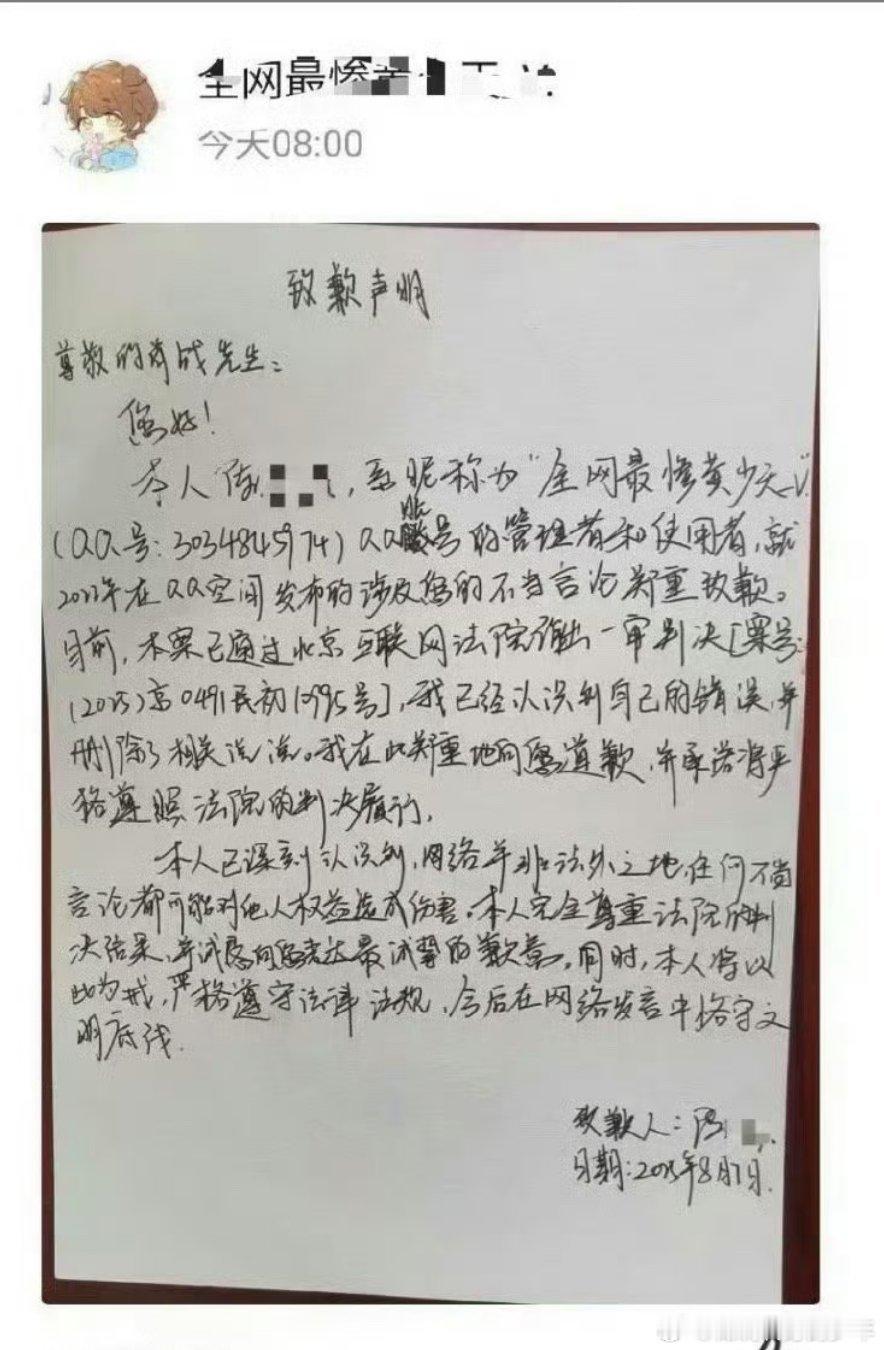 全网最惨
今天08:00
致歉声明
尊敬的肖战先生：
您好！
本人陈，系昵称为“全网最惨黄少天_V”
（QQ号：3034845974）QQ账号的管理者和使用者，就
2022年在QQ空间发布的涉及您的不当言论郑重致歉。
目前，本案已通过北京互联网法院作出一审判决［案号：
（2025）京0491民初10995号］，我已经认识到自己的错误，并
删除了相关说说。我在此郑重地向您道歉，并承诺将严
格遵照法院的判决履行。
本人已深刻认识到，网络并非法外之地，任何不当
言论都可能对他人权益造成伤害。本人完全尊重法院的判
决结果，并诚恳向您表达最诚挚的歉意。同时，本人将以
此为戒，严格遵守法律法规，今后在网络发言中恪守文
明底线。
致歉人：陈
日期：2025年8月7日.